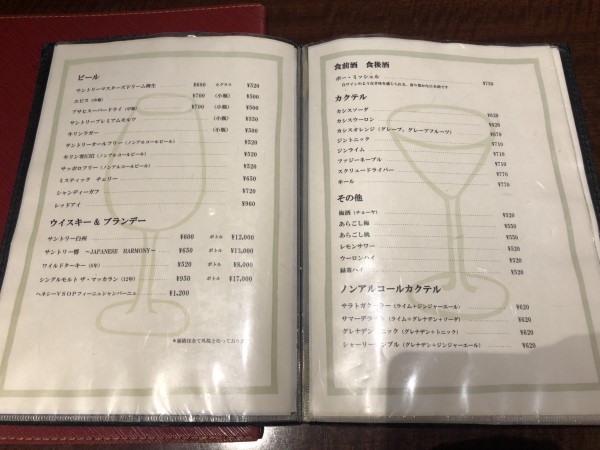 ビール
サントリーマスターズドリーム樽生 ¥680 小グラス ¥520
エビス（中瓶） ¥700 （小瓶） ¥500
アサヒスーパードライ（中瓶） ¥700 （小瓶） ¥500
サントリープレミアムモルツ （小瓶） ¥550
キリンラガー （小瓶） ¥500
サントリーオールフリー（ノンアルコールビール） ¥520
キリン（ノンアルコールビール） ¥520
サッポロフリー（ノンアルコールビール） ¥520
ミスティック チェリー ¥650
シャンディーガフ ¥720
レッドアイ ¥960
ウイスキー & ブランデー
サントリー白州 ¥600 ボトル ¥12,000
サントリー響 ～JAPANESE HARMONY～ ¥650 ボトル ¥13,000
ワイルドターキー（8年） ¥520 ボトル ¥8,000
シングルモルト ザ・マッカラン（12年） ¥950 ボトル ¥17,000
ヘネシーVSOPフィーニュシャンパーニュ ¥1,200
＊価格は全て外税となっております
食前酒 食後酒
ボー・ミッシェル ¥750
カクテル
カシスソーダ
カシスウーロン ¥620
カシスオレンジ（グレープ、グレープフルーツ） ¥670
ジントニック ¥710
ジンライム ¥710
ファジーネーブル ¥710
スクリュードライバー ¥770
キール ¥770
その他
梅酒（チョーヤ） ¥520
あらごし梅 ¥550
あらごし桃 ¥550
レモンサワー ¥520
ウーロンハイ ¥520
緑茶ハイ ¥520
ノンアルコールカクテル
サラトガクーラー（ライム＋ジンジャーエール） ¥620
サマーデライト（ライム＋グレナデン＋ソーダ） ¥620
グレナデントニック（グレナデン＋トニック） ¥620
シャーリーテンプル（グレナデン＋ジンジャーエール） ¥620